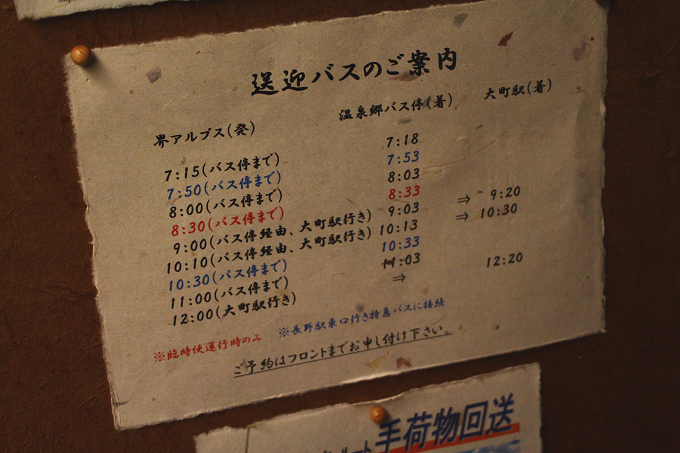 送迎バスのご案内
界アルプス(発) 温泉郷バス停(着) 大町駅(着)
7:15(バス停まで) 7:18
7:50(バス停まで) 7:53
8:00(バス停まで) 8:03
8:30(バス停まで) 8:33
9:00(バス停経由、大町駅行き) 9:03 ⇒ 9:20
10:10(バス停経由、大町駅行き) 10:13 ⇒ 10:30
10:30(バス停まで) 10:33
11:00(バス停まで) 11:03
12:00(大町駅行き) ⇒ 12:20
※臨時便運行時のみ ※長野駅東口行き特急バスに接続
ご予約はフロントまでお申し付け下さい。
ルート手荷物回送